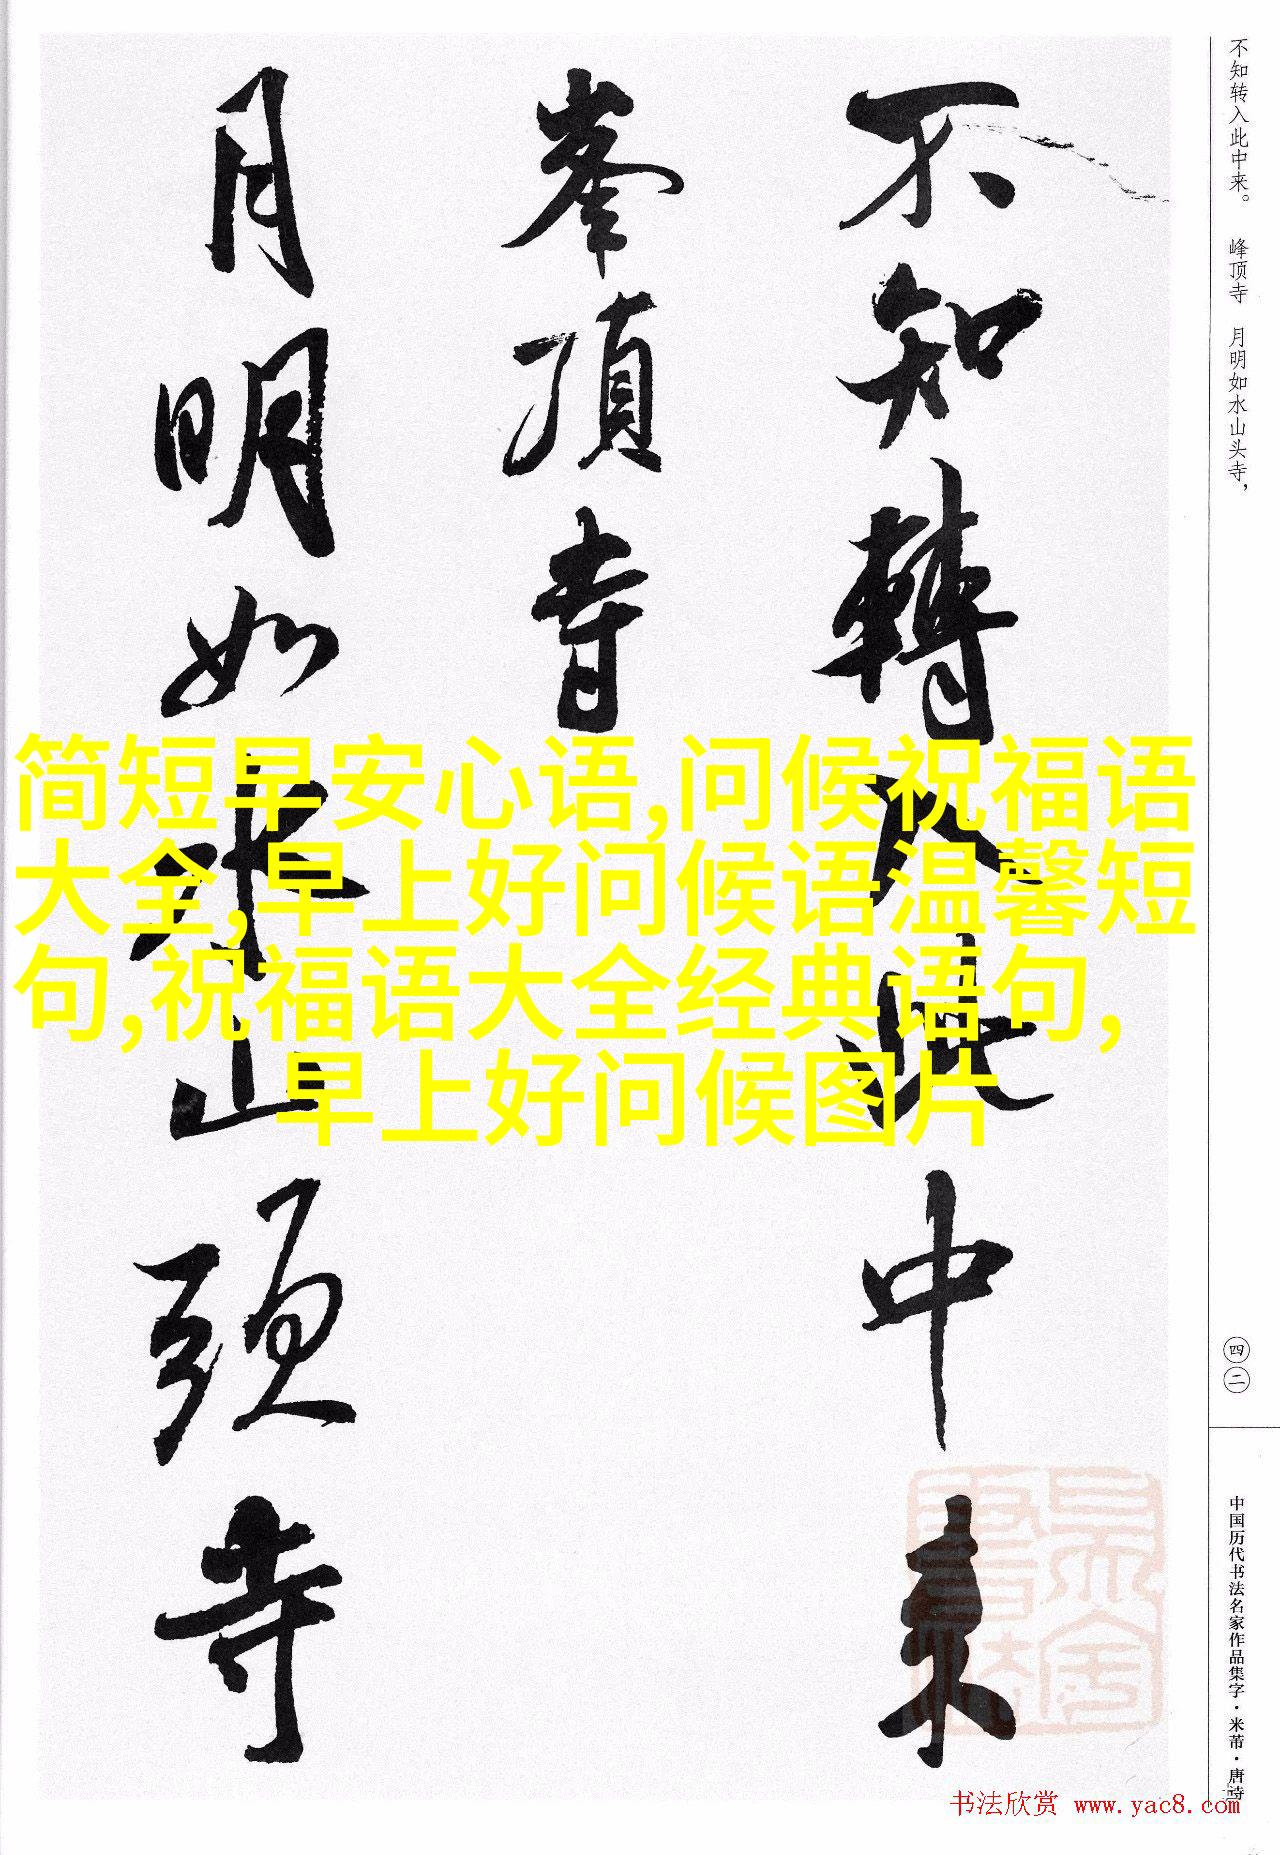 不知转入此中来。 峰顶寺 月明如水山头寺，
不知轉入此中来
峯頂寺
月明如水山頭寺
简短早安心语,问候祝福语
大全,早上好问候语温馨短
句,祝福语大全经典语句,
早上好问候图片
四二
中国历代书法名家作品集字·米芾·唐诗
书法欣赏 www.yac8.com